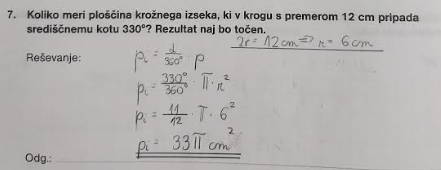 7. Koliko meri ploščina krožnega izseka, ki v krogu s premerom 12 cm pripada
središčnemu kotu 330°? Rezultat naj bo točen.
2r = 12cm ⇒ r = 6cm
Reševanje:
pi = α/360° · p
pi = 330°/360° · π · r²
pi = 11/12 · π · 6²
pi = 33π cm²
Odg.: